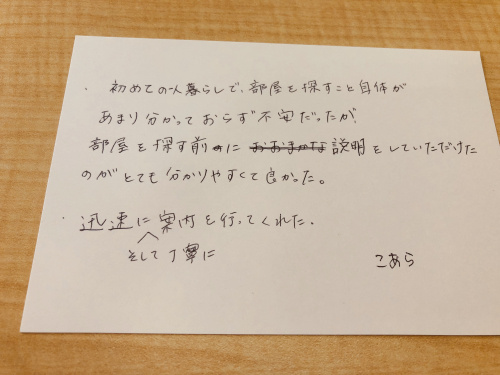 ・ 初めての一人暮らしで、部屋を探すこと自体が
あまり分かっておらず不安だったが、
部屋を探す前に おおまかな 説明をしていただけた
のがとても分かりやすくて良かった。
・ 迅速に案内を行ってくれた.
そして丁寧に
こあら